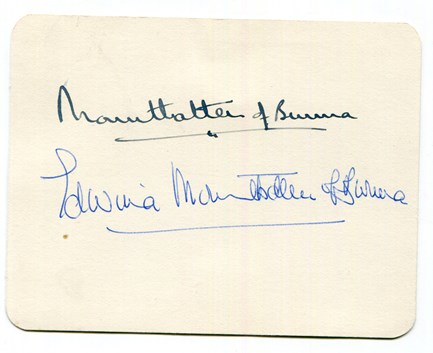 Mountbatten of Burma
Edwina Mountbatten of Burma